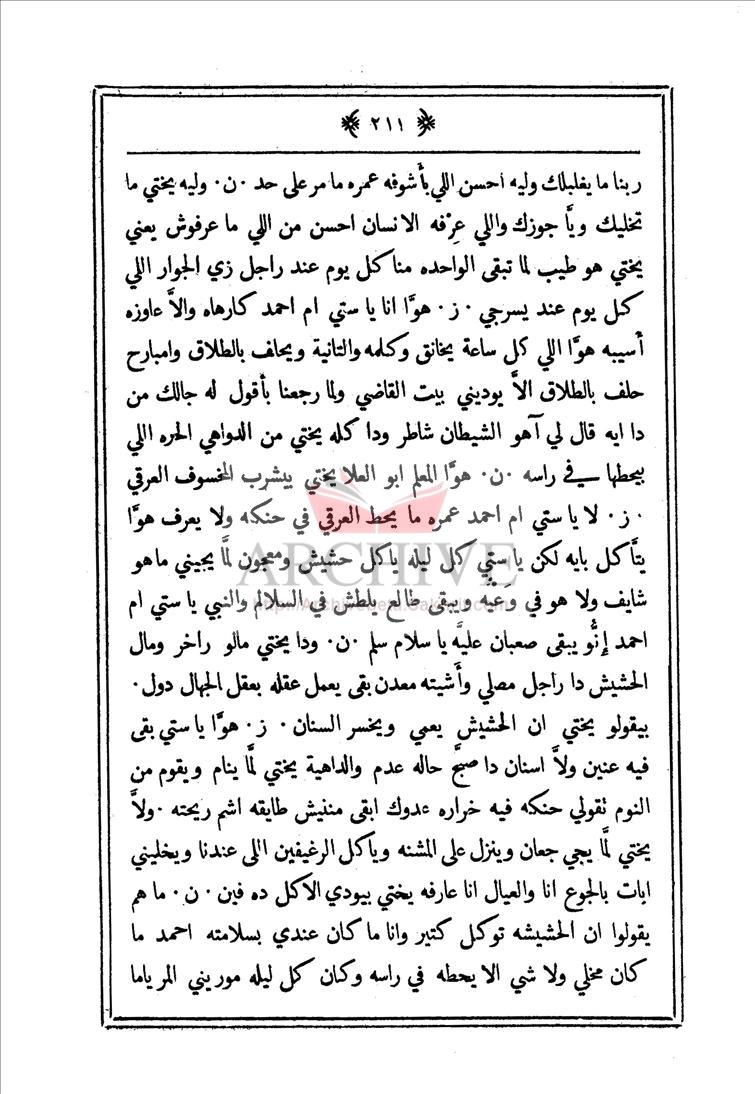 ﴿ ٢١١ ﴾
ربنا ما يغلبلك وليه احسن اللي بأشوفه عمره ما مر على حد ٠ن٠ وليه يختي ما
تخليك ويَّا جوزك واللي عِرْفه الانسان احسن من اللي ما عرفوش يعني
يختي هو طيب لما تبقى الواحده منا كل يوم عند راجل زي الجوار اللي
كل يوم عند يسرجي ٠ ز ٠ هوَّا انا يا ستي ام احمد كارهاه والاَّ عاوزه
أسيبه هوَّا اللي كل ساعة يخانق وكلمه والتانية ويحلف بالطلاق وامبارح
حلف بالطلاق الاَّ يوديني بيت القاضي ولما رجعنا بأقول له جالك من
دا ايه قال لي آهو الشيطان شاطر ودا كله يختي من الدواهي الحره اللي
بيحطها في راسه ٠ن٠ هوَّا المعلم ابو العلا يختي بيشرب المخسوف العرقي
٠ ز ٠ لا يا ستي ام احمد عمره ما يحط العرقي في حنكه ولا يعرف هوَّا
يتأكل بايه لكن يا ستي كل ليله ياكل حشيش ومعجون لمَّا يجيني ما هو
شايف ولا هو في وَعْيُه ويبقى طالع يلطش في السلالم والنبي يا ستي ام
احمد إنُّو يبقى صعبان عليَّه يا سلام سلم ٠ن٠ ودا يختي مالو راخر ومال
الحشيش دا راجل مصلي وأشيته معدن بقى يعمل عقله بعقل الجهال دول ٠
بيقولو يختي ان الحشيش يعمي ويخسر السنان ٠ ز ٠ هوَّا يا ستي بقى
فيه عنين ولاَّ اسنان دا صبحَّ حاله عدم والداهية يختي لمَّا ينام ويقوم من
النوم تقولي حنكه فيه خراره عدوك ابقى منيش طايقه اشم ريحته ٠ ولاَّ
يختي لمَّا يجي جعان وينزل على المشنه وياكل الرغيفين اللى عندنا ويخليني
ابات بالجوع انا والعيال انا عارفه يختي بيودي الاكل ده فين ٠ ن ٠ ما هم
يقولوا ان الحشيشه توكل كتير وانا ما كان عندي بسلامته احمد ما
كان مخلي ولا شي الا يحطه في راسه وكان كل ليله موريني المر ياما
ARCHIVE